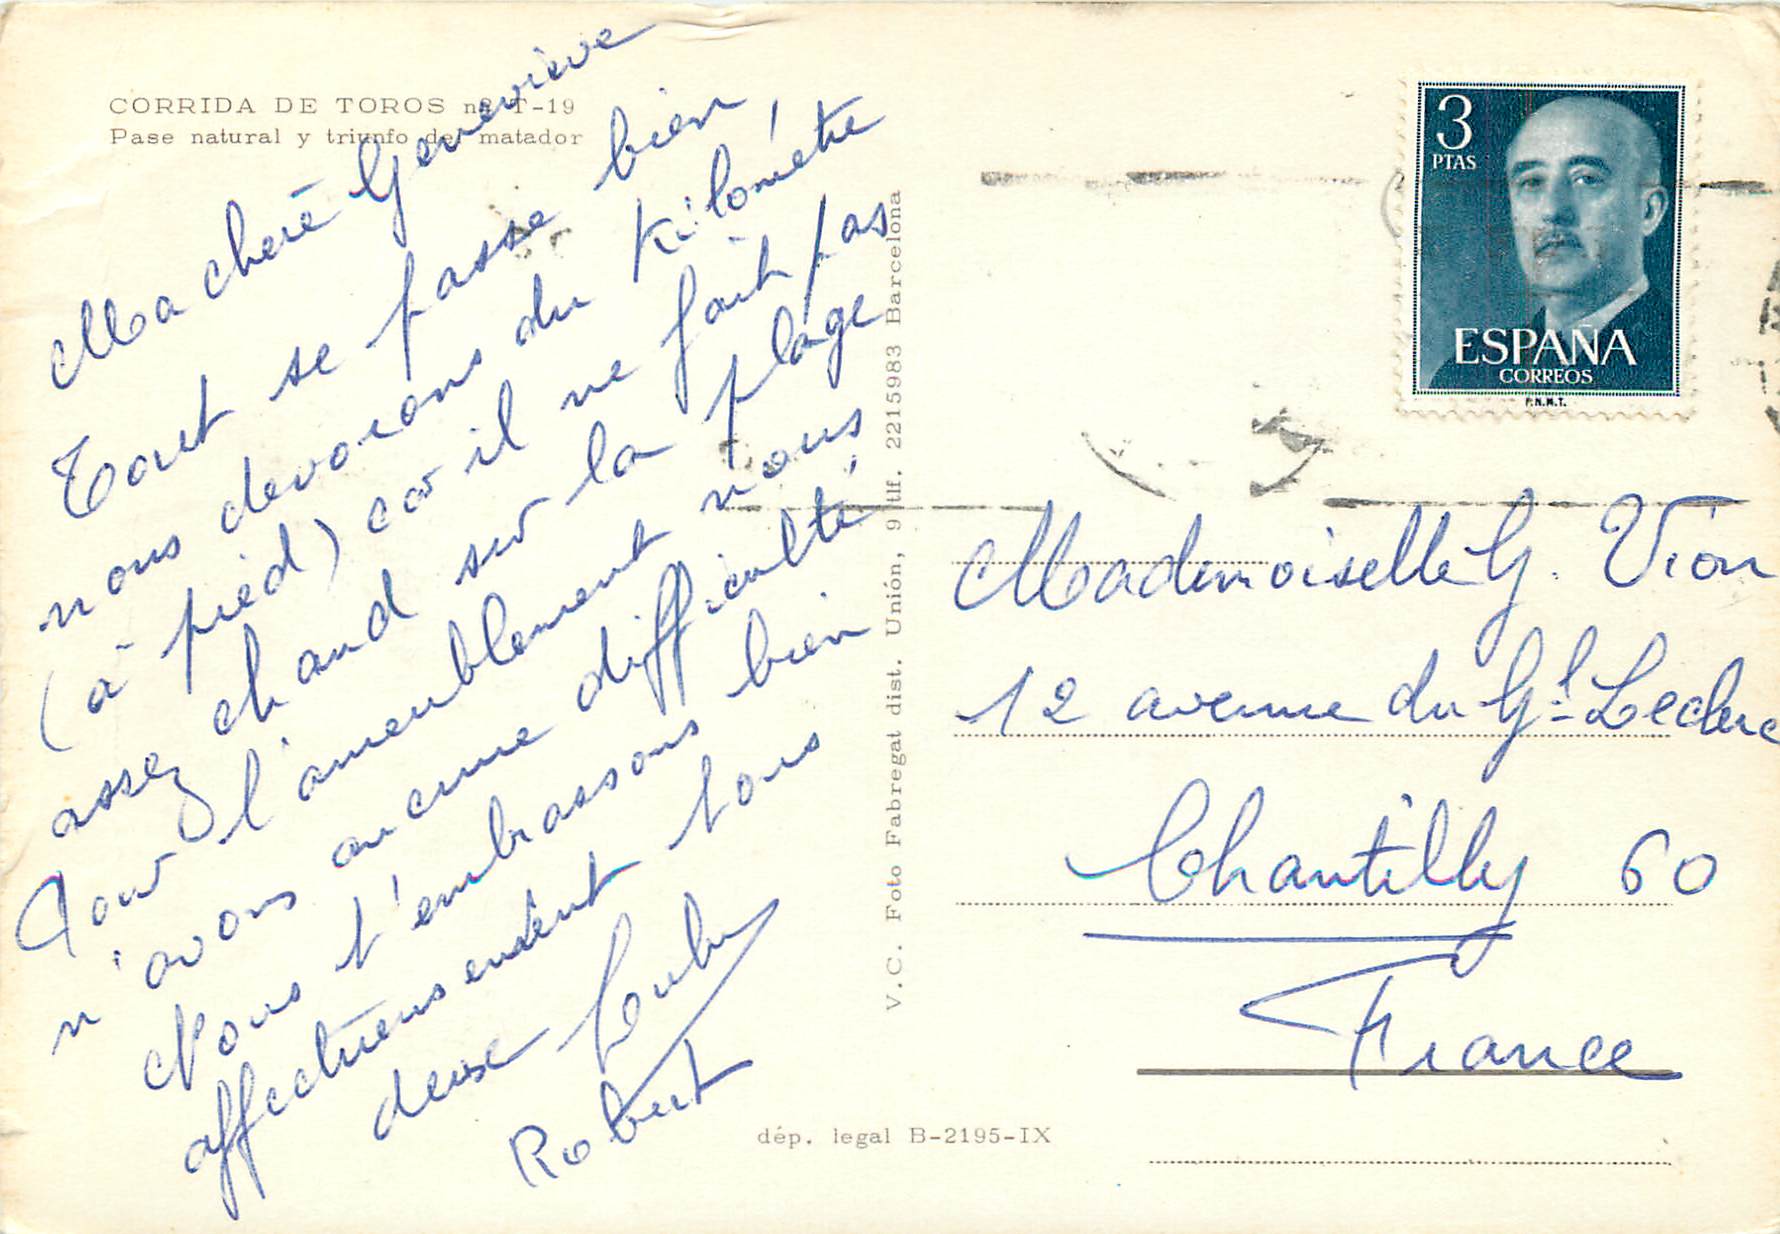 CORRIDA DE TOROS nº T-19
Pase natural y triunfo del matador
Ma chère Geneviève
Tout se passe bien,
nous devorons du kilomètre
(à pied) car il ne fait pas
assez chaud sur la plage
Pour l'ameublement nous
n'avons aucune difficulté
Nous t'embrassons bien
affectueusement tous
deux
Robert
V.C. Foto Fabregat dist. Unión, 9 tlf. 2215983 Barcelona
dép. legal B-2195-IX
3
PTAS
ESPAÑA
CORREOS
F.N.M.T.
Mademoiselle G. Vion
12 avenue du Gl Leclerc
Chantilly 60
France